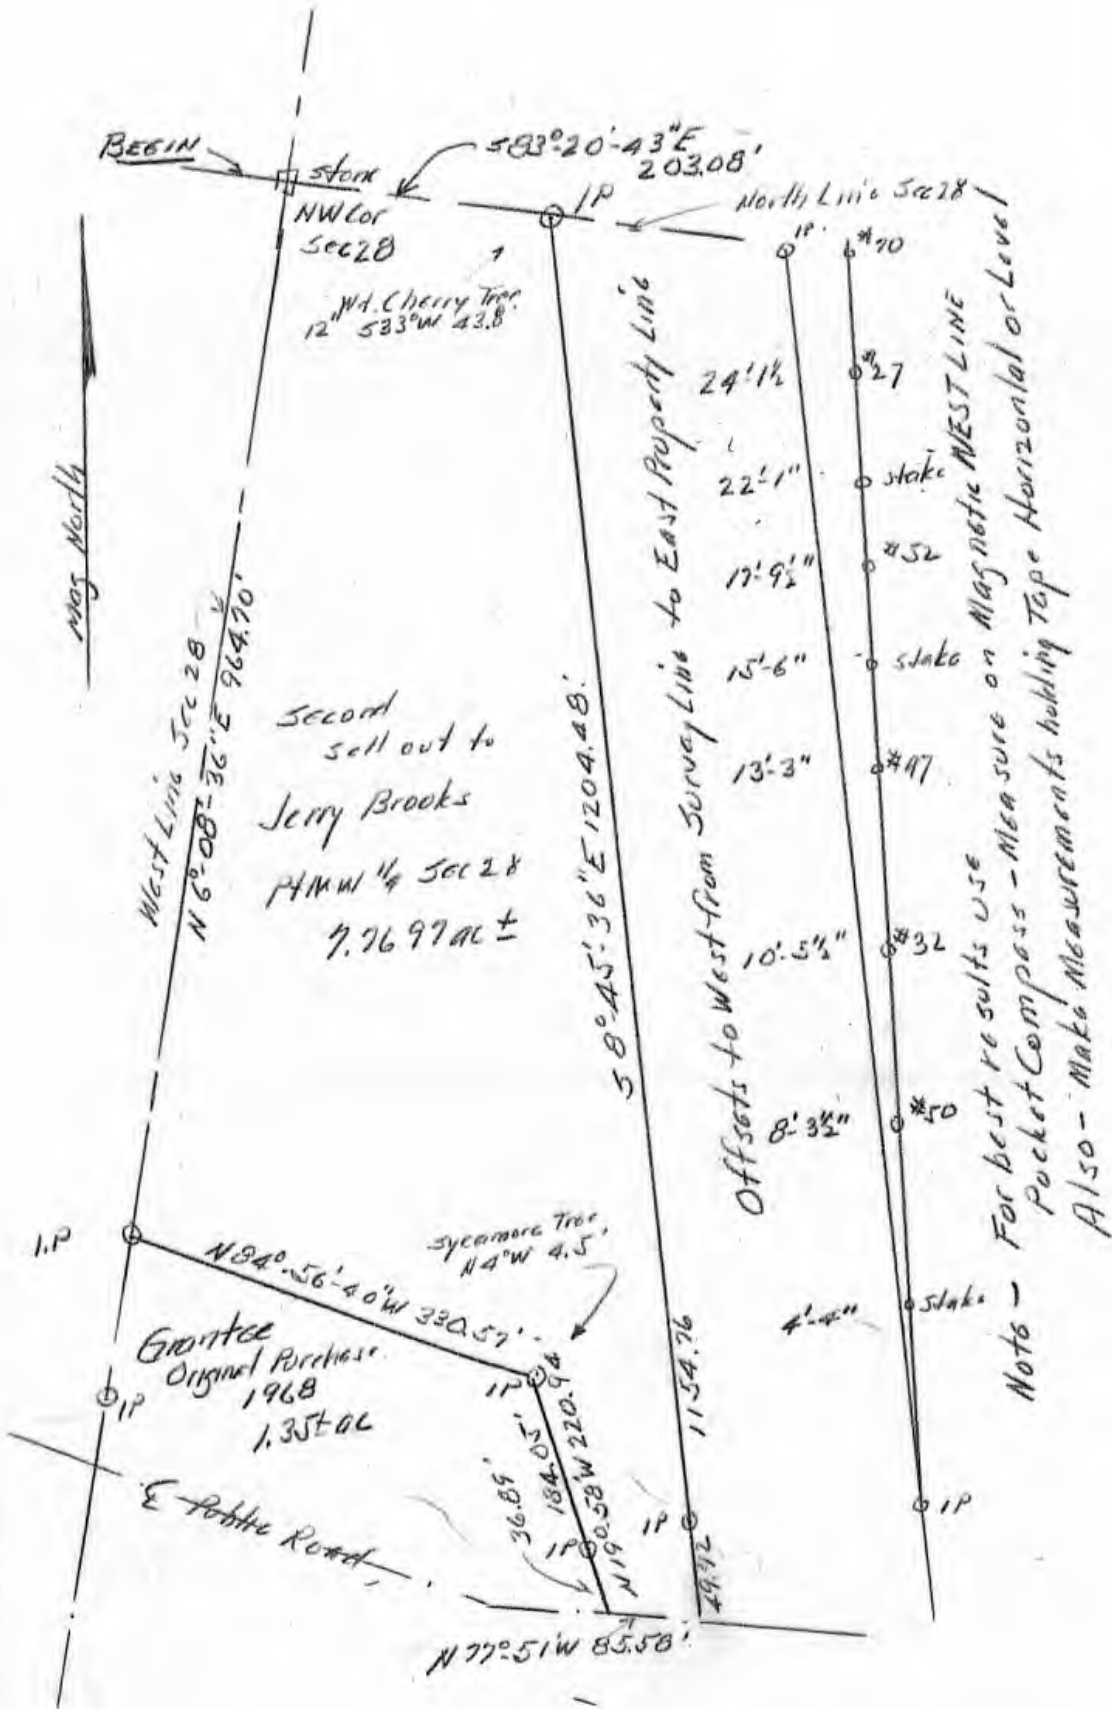 BEGIN
S83°-20'-43"E
203.08'
stone
NW Cor
Sec 28
IP
North Line Sec 28
Wd. Cherry Tree
12" S33°W 43.8'
Mag North
West Line Sec 28
N 6°-08'-36"E 964.70'
Second
sell out to
Jerry Brooks
Pt NW 1/4 Sec 28
7.7697 ac ±
S 8°-45'-36" E 1204.48'
1154.76
49.72
Offsets to West from Survey Line to East Property Line
IP
#70
24'-1½
#27
22'-1"
stake
17'-9½"
#52
15'-6"
stake
13'-3"
#47
10'-5½"
#32
8'-3½"
#50
4'-4"
stake
IP
Note - For best results use
Pocket Compass - Measure on Magnetic WEST LINE
Also - Make Measurements holding Tape Horizontal or Level
I.P
N84°-56'-40"W 330.57'
Sycamore Tree
N4°W 4.5'
Grantee
Original Purchase
1968
1.35± ac
IP
IP
36.89'
184.05'
N19°-58'W 220.94
IP
IP
℄ Public Road
N 77°-51'W 85.58'